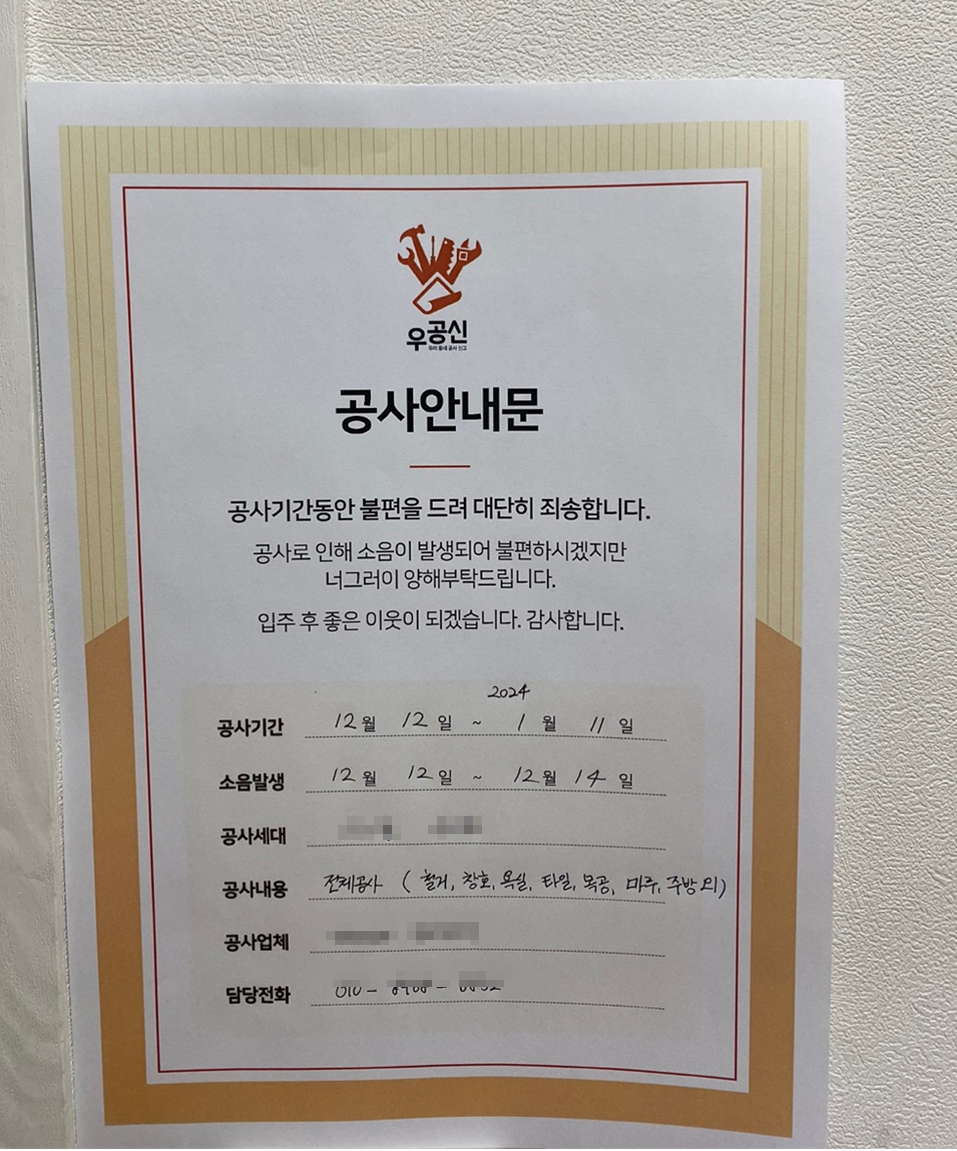 우공신
우리 동네 공사 신고
공사안내문
공사기간동안 불편을 드려 대단히 죄송합니다.
공사로 인해 소음이 발생되어 불편하시겠지만
너그러이 양해부탁드립니다.
입주 후 좋은 이웃이 되겠습니다. 감사합니다.
2024
공사기간 12월 12일 ~ 1월 11일
소음발생 12월 12일 ~ 12월 14일
공사세대
공사내용 전체공사 (철거, 창호, 욕실, 타일, 목공, 마루, 주방 외)
공사업체
담당전화 010 -